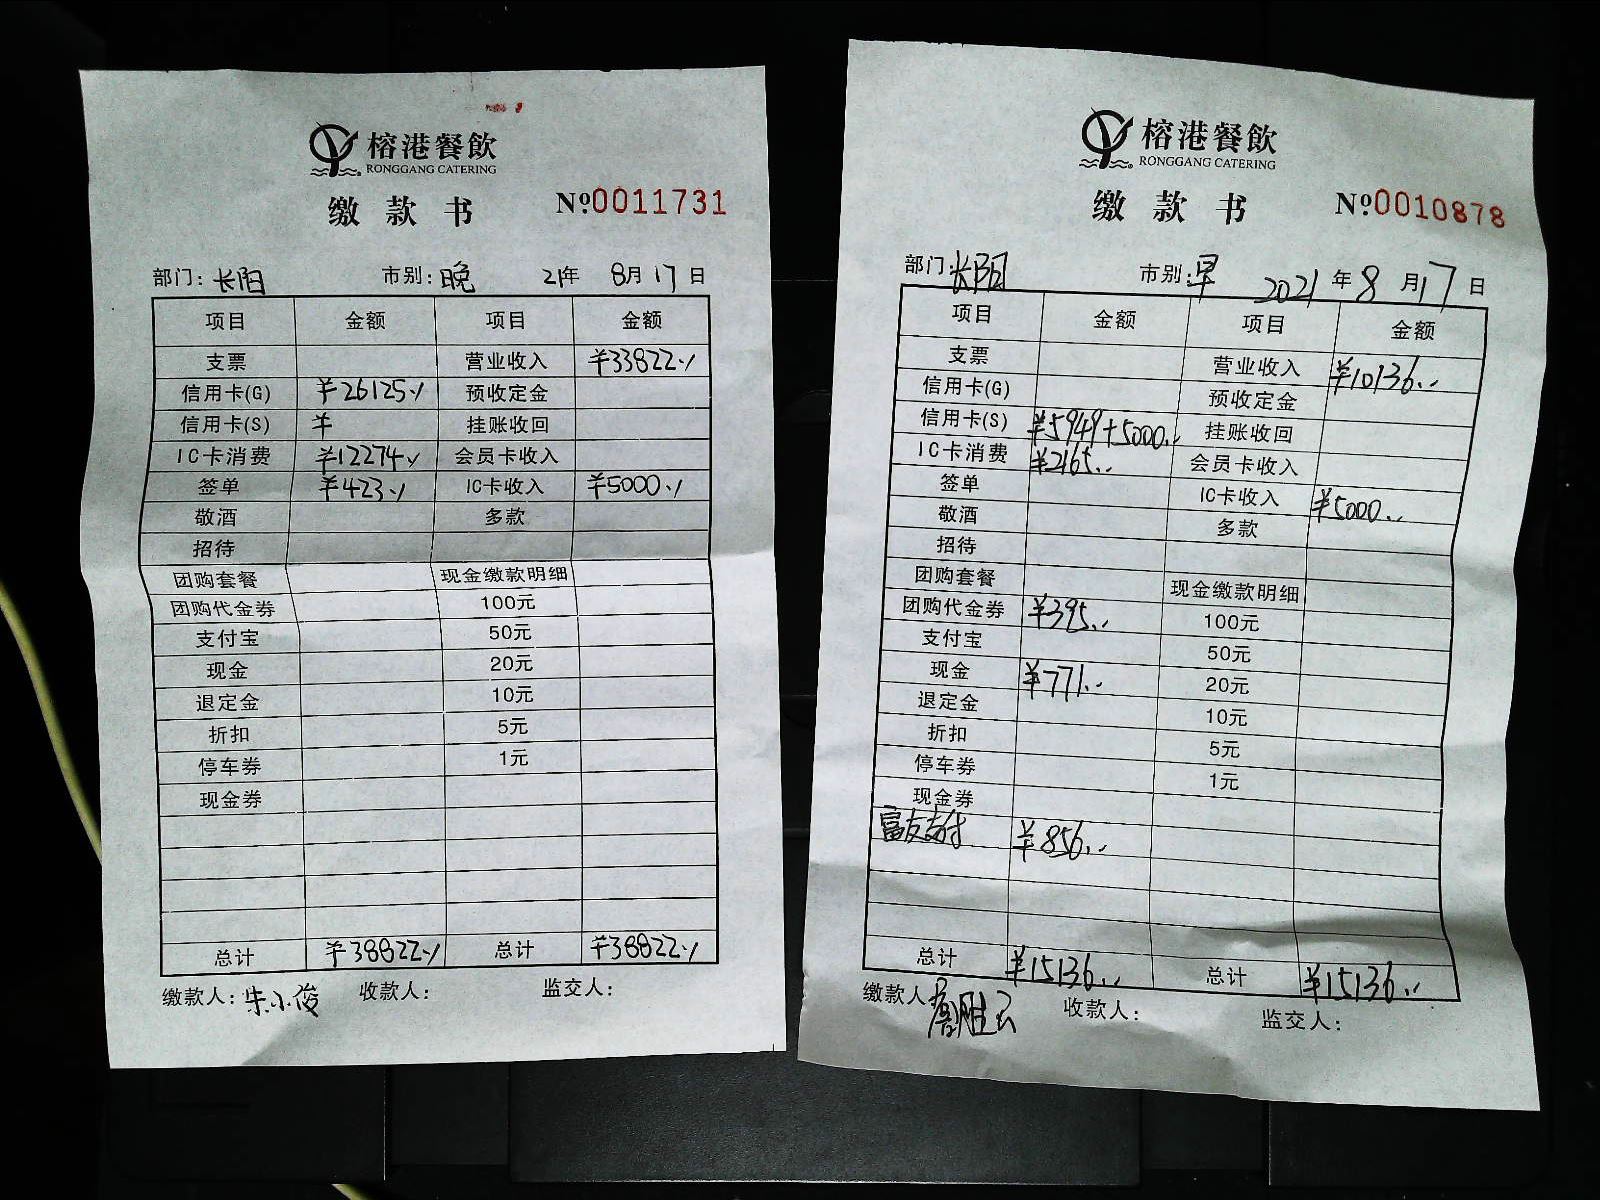 榕港餐飲
RONGGANG CATERING
缴款书 №0011731
部门：长阳 市别：晚 21年 8月17日
项目 金额 项目 金额
支票 营业收入 ¥33822.
信用卡(G) ¥26125. 预收定金
信用卡(S) ¥ 挂账收回
IC卡消费 ¥12274. 会员卡收入
签单 ¥423. IC卡收入 ¥5000.
敬酒 多款
招待
团购套餐 现金缴款明细
团购代金券 100元
支付宝 50元
现金 20元
退定金 10元
折扣 5元
停车券 1元
现金券
总计 ¥38822. 总计 ¥38822.
缴款人：朱小俊 收款人： 监交人：
榕港餐飲
RONGGANG CATERING
缴款书 №0010878
部门：长阳 市别：早 2021年8月17日
项目 金额 项目 金额
支票 营业收入 ¥10136..
信用卡(G) 预收定金
信用卡(S) ¥5949+5000.. 挂账收回
IC卡消费 ¥2165.. 会员卡收入
签单 IC卡收入 ¥5000..
敬酒 多款
招待
团购套餐 现金缴款明细
团购代金券 ¥395.. 100元
支付宝 50元
现金 ¥771.. 20元
退定金 10元
折扣 5元
停车券 1元
现金券
富友支付 ¥856..
总计 ¥15136.. 总计 ¥15136..
缴款人 收款人： 监交人：